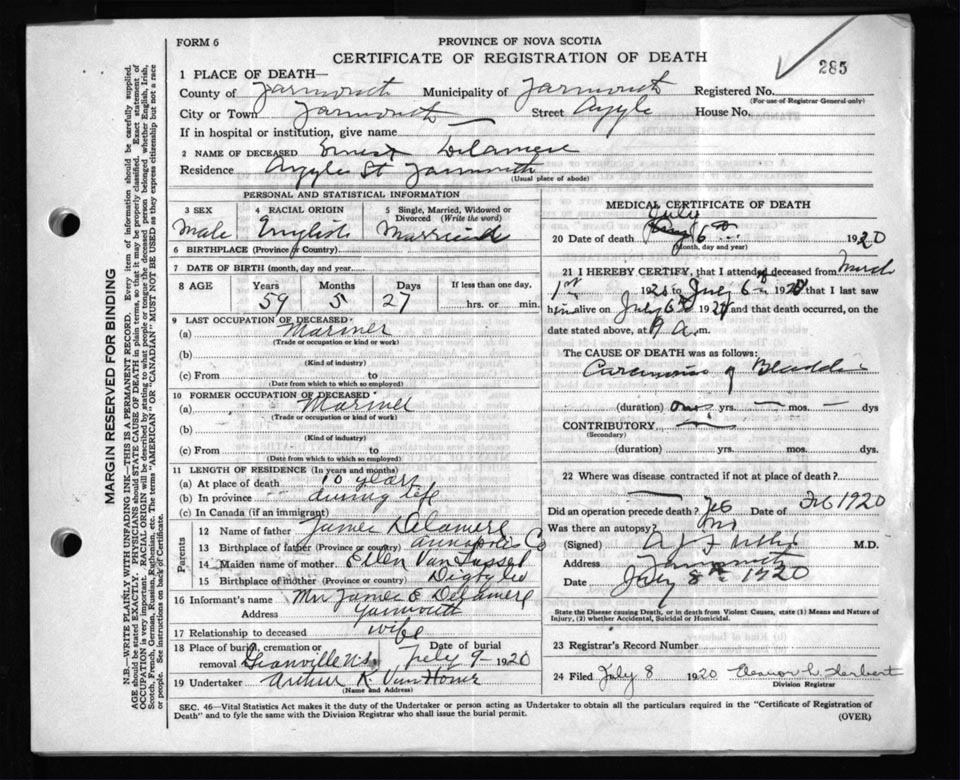 FORM 6
PROVINCE OF NOVA SCOTIA
CERTIFICATE OF REGISTRATION OF DEATH
285
1 PLACE OF DEATH—
County of Yarmouth Municipality of Yarmouth Registered No.
(For use of Registrar General only)
City or Town Yarmouth Street Argyle House No.
If in hospital or institution, give name
2 NAME OF DECEASED Ernest Delamere
Residence Argyle St Yarmouth
(Usual place of abode)
PERSONAL AND STATISTICAL INFORMATION
3 SEX 4 RACIAL ORIGIN 5 Single, Married, Widowed or Divorced (Write the word)
Male English Married
6 BIRTHPLACE (Province or Country)
7 DATE OF BIRTH (month, day, and year)
8 AGE Years Months Days If less than one day,
59 5 27 hrs. or min.
9 LAST OCCUPATION OF DECEASED
(a) Mariner
(Trade or occupation or kind or work)
(b)
(Kind of industry)
(c) From to
(Date from which to which so employed)
10 FORMER OCCUPATION OF DECEASED
(a) Mariner
(Trade or occupation or kind of work)
(b)
(Kind of industry)
(c) From to
(Date from which to which so employed)
11 LENGTH OF RESIDENCE (In years and months)
(a) At place of death 10 years
(b) In province during life
(c) In Canada (if an immigrant)
Parents
12 Name of father James Delamere
13 Birthplace of father (Province or country) Annapolis Co
14 Maiden name of mother Ellen Van Tassel
15 Birthplace of mother (Province or country) Digby Co
16 Informant's name Mrs James E Delamere
Address Yarmouth
17 Relationship to deceased wife
18 Place of burial, cremation or removal Granville N.S. Date of burial July 9 - 1920
19 Undertaker Arthur K. Van Horne
(Name and Address)
MEDICAL CERTIFICATE OF DEATH
July
20 Date of death 6th 1920
(Month, day and year)
21 I HEREBY CERTIFY, that I attended deceased from March
1st 1920 to July 6th 1920 that I last saw
him alive on July 6th 1920 and that death occurred, on the
date stated above, at 9 a.m.
The CAUSE OF DEATH was as follows:
Carcinoma of Bladder
(duration) one yrs. — mos. — dys
CONTRIBUTORY
(Secondary)
(duration) yrs. mos. dys.
22 Where was disease contracted if not at place of death?
Did an operation precede death? Yes Date of Feb 1920
Was there an autopsy? No
(Signed) M.D.
Address Yarmouth
Date July 8th 1920
State the Disease causing Death, or in death from Violent Causes, state (1) Means and Nature of
Injury, (2) whether Accidental, Suicidal or Homicidal.
23 Registrar's Record Number
24 Filed July 8 1920 Eleanor L. Herbert
Division Registrar
SEC. 46—Vital Statistics Act makes it the duty of the Undertaker or person acting as Undertaker to obtain all the particulars required in the "Certificate of Registration of
Death" and to fyle the same with the Division Registrar who shall issue the burial permit. (OVER)
MARGIN RESERVED FOR BINDING
N.B.—WRITE PLAINLY WITH UNFADING INK—THIS IS A PERMANENT RECORD. Every item of information should be carefully supplied.
AGE should be stated EXACTLY. PHYSICIANS should STATE CAUSE OF DEATH in plain terms, so that it may be properly classified. Exact statement of
OCCUPATION is very important. RACIAL ORIGIN will be described by stating to what people or tongue the deceased person belonged whether English, Irish,
Scotch, French, German, Russian, Ruthenian, etc. The terms "AMERICAN" OR "CANADIAN" MUST NOT BE USED as they express citizenship but not a race
or people. See instructions on back of Certificate.